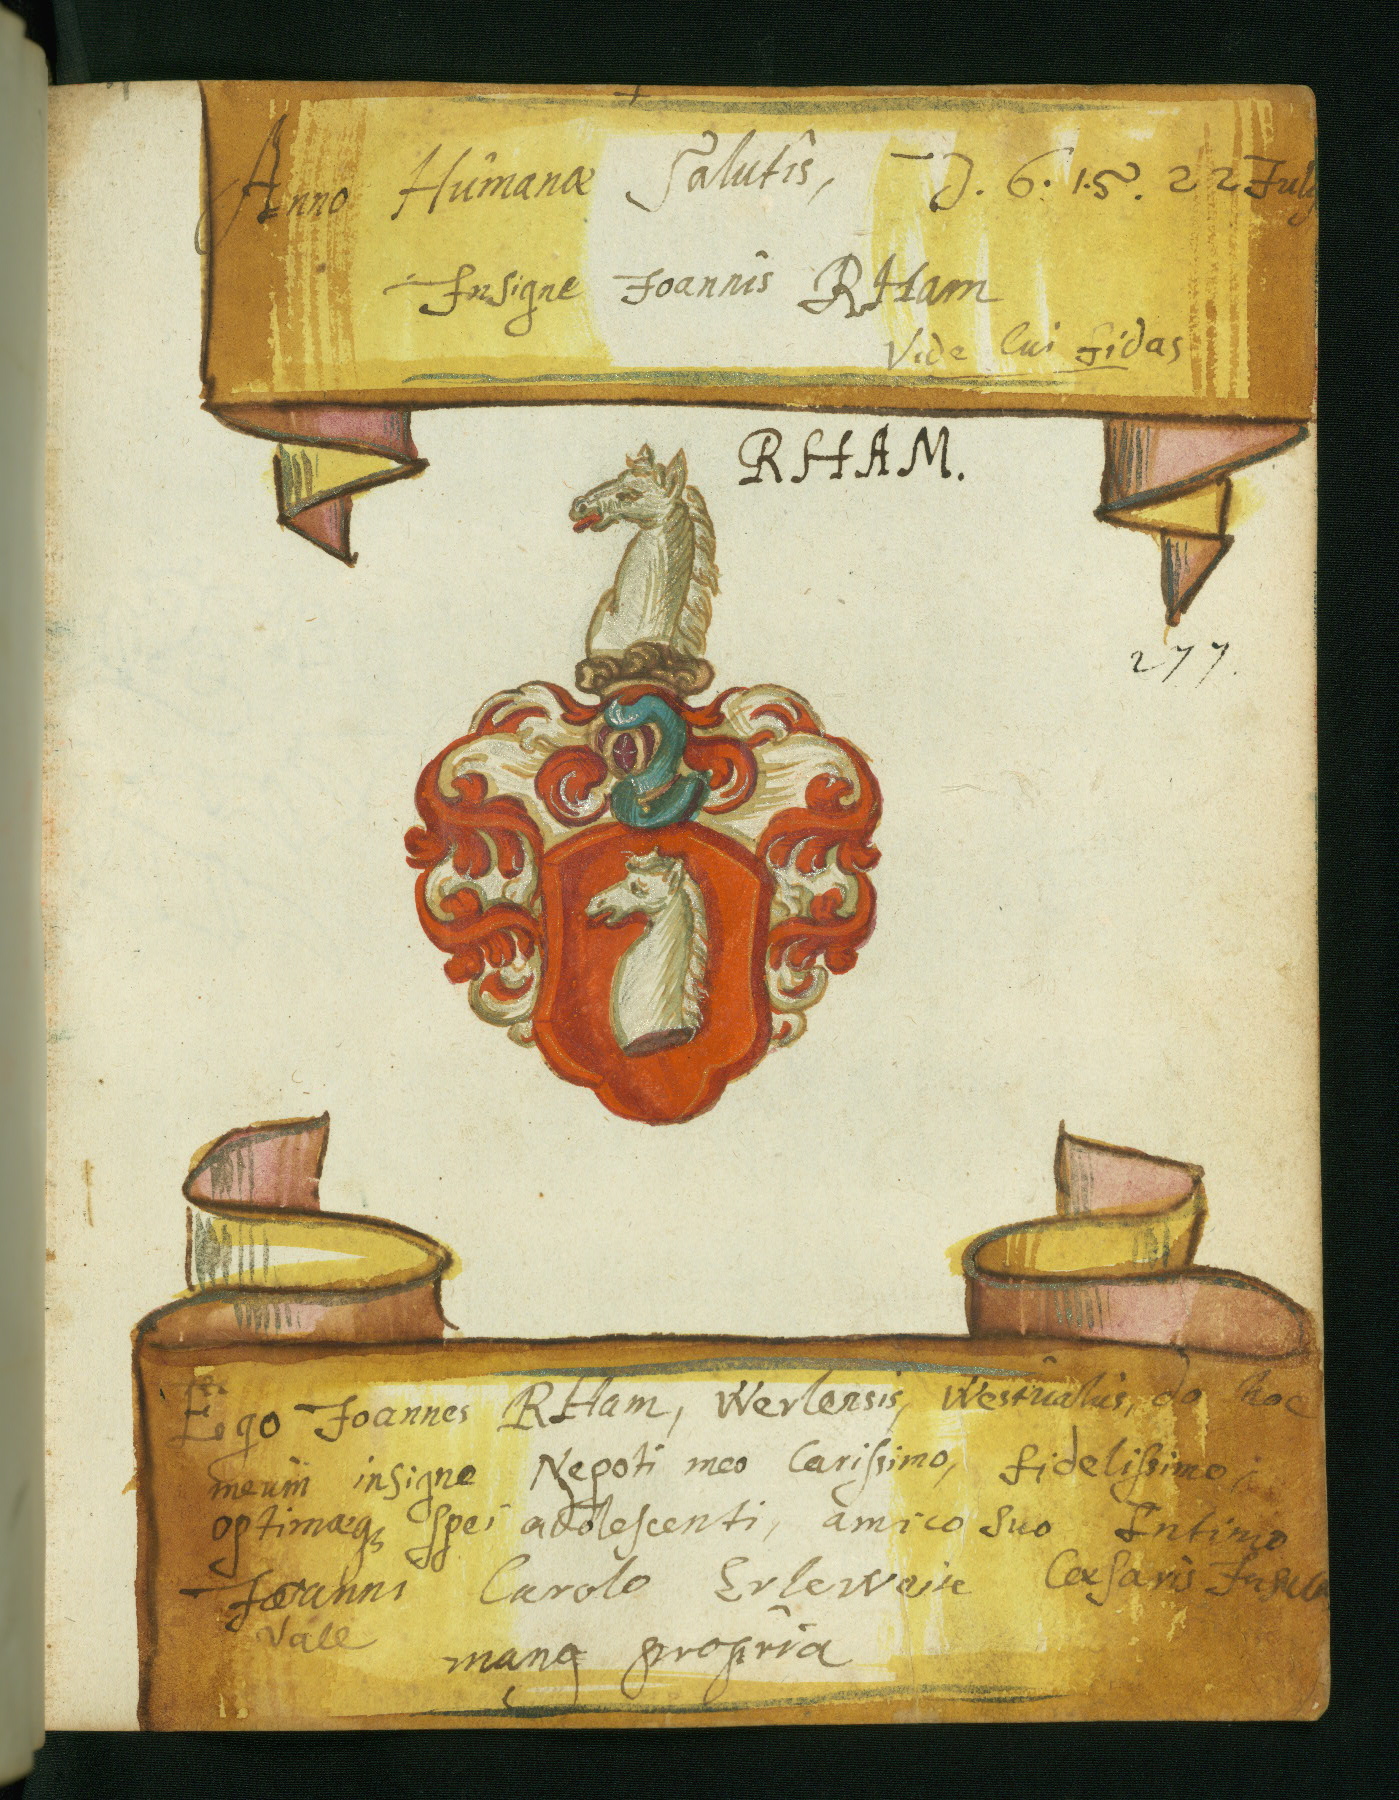 Anno Humanæ Salutis, D. 6. 15. 22 July
Insigne Joannis RHam
Vide cui fidas
RHAM.
277.
Ego Joannes RHam, Werlensis, Westualus, do hoc
meum insigne Nepoti meo Carissimo, fidelissimo,
optimæq; spei adolescenti, amico suo Intimo
Joanni Carolo Erlewein Cæsaris
Vale
manq propria